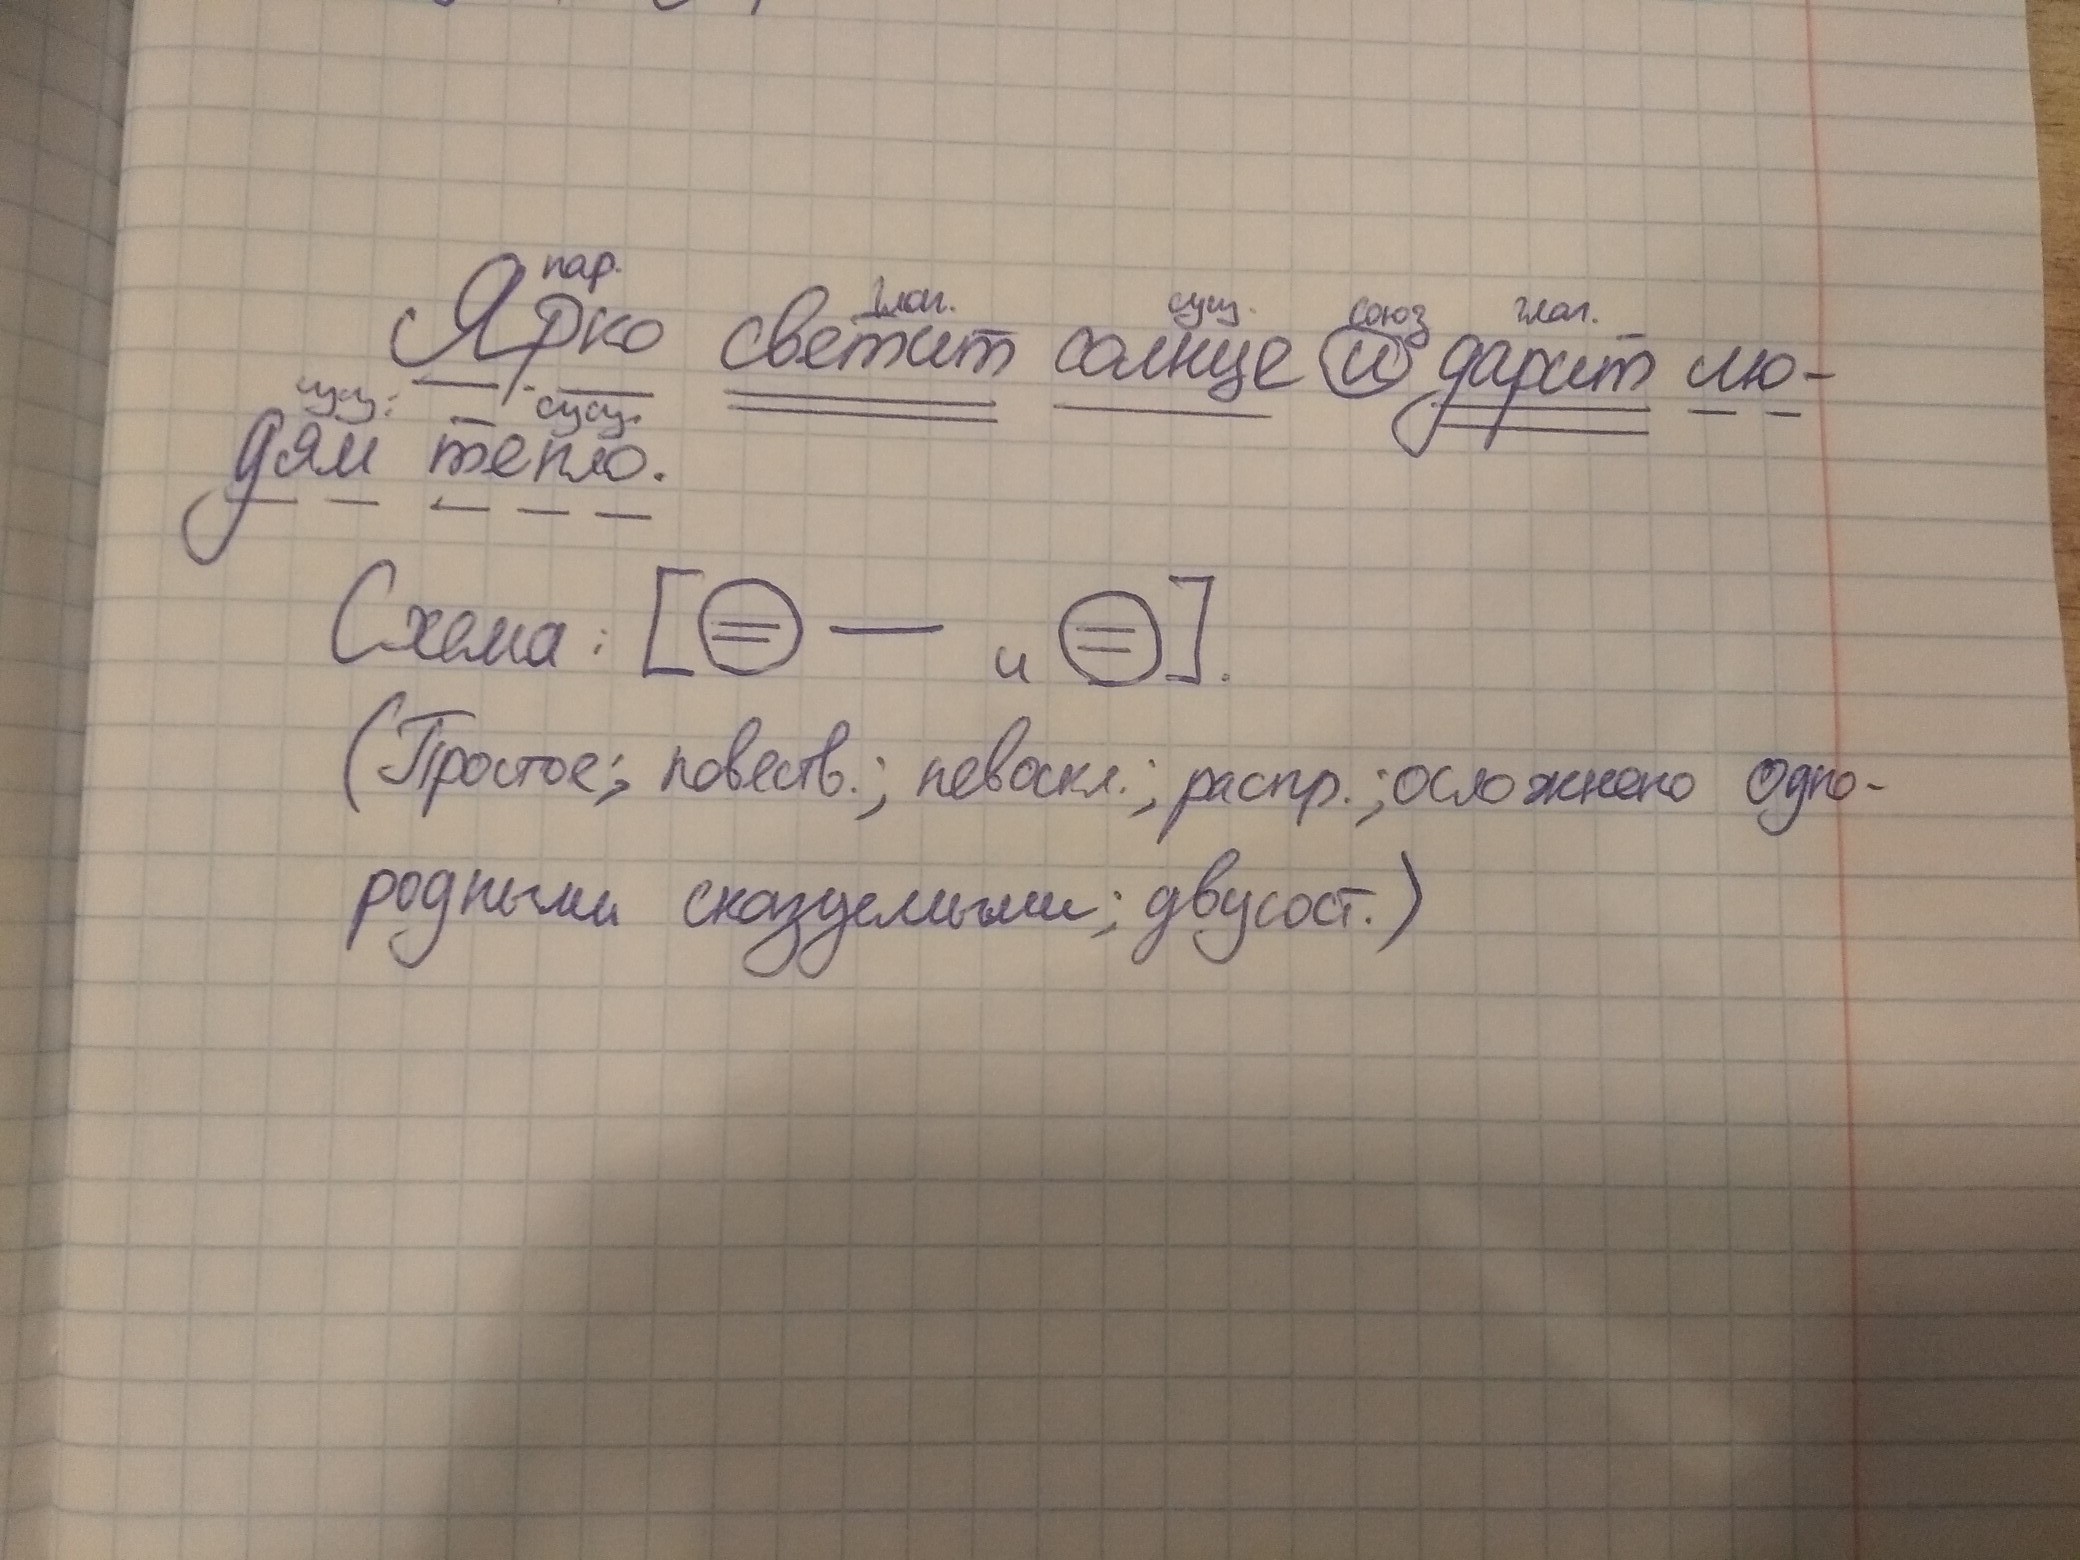 нар. глаг. сущ. союз глаг.
Ярко светит солнце и дарит лю-
сущ. сущ.
дям тепло.
Схема: [= — и =].
(Простое; повеств.; невоскл.; распр.; осложнено одно-
родными сказуемыми; двусост.)